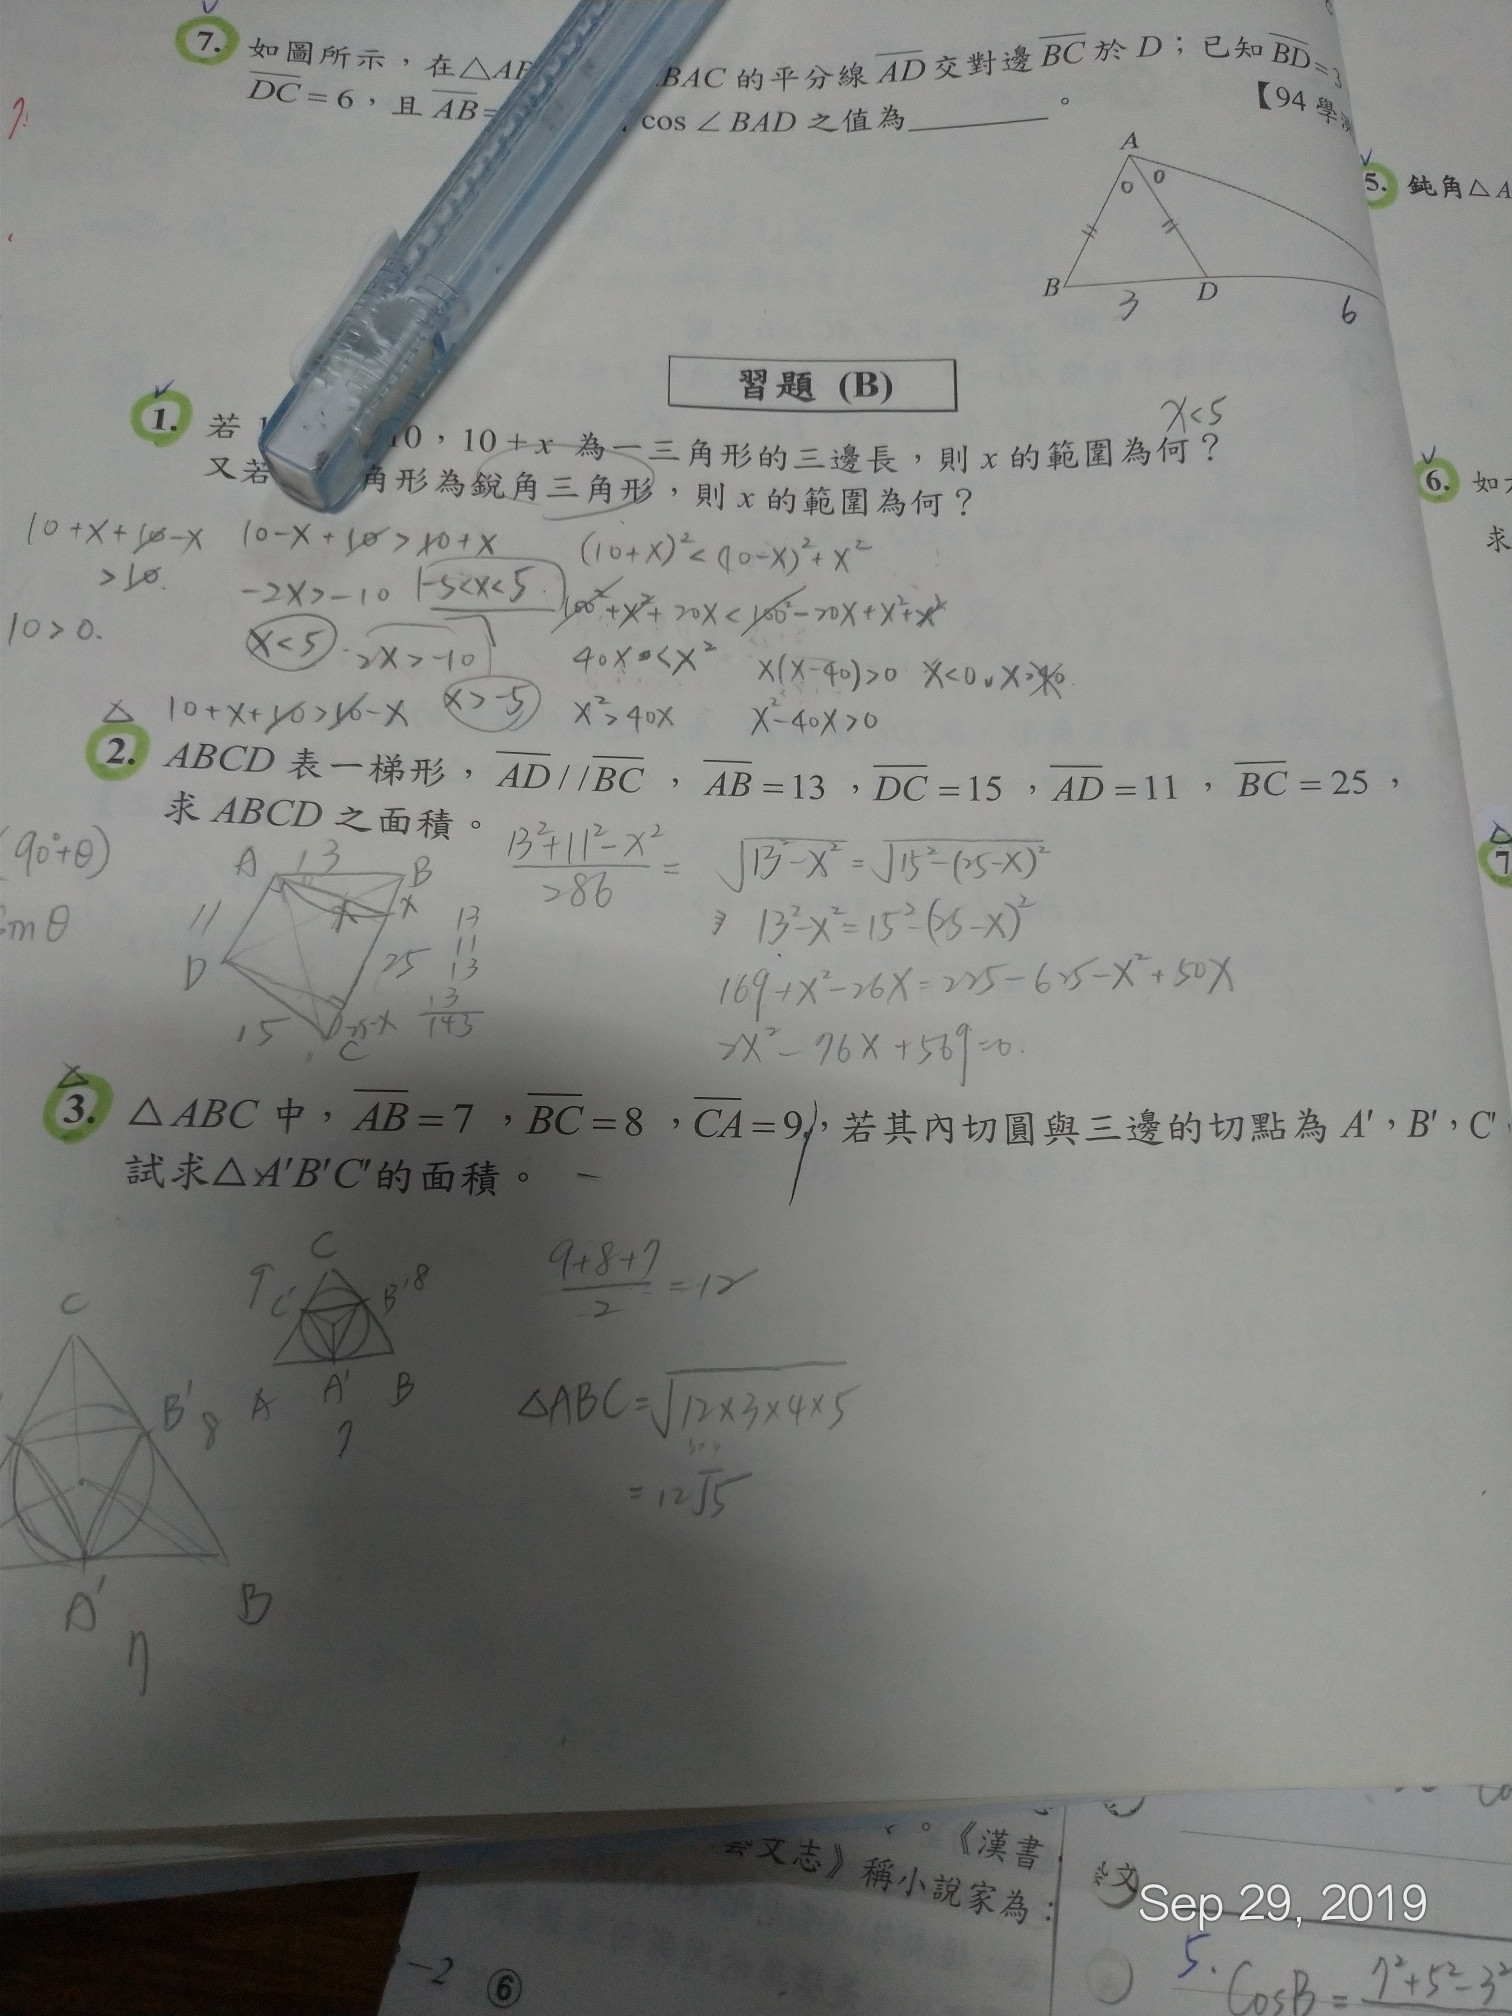 7. 如圖所示，在△AB BAC 的平分線 AD 交對邊 BC 於 D；已知 BD=3
DC=6，且 AB= cos∠BAD 之值為______。 【94 學
A
B
D
3
6
5. 鈍角△A
習題 (B)
x<5
1. 若 10，10+x 為一三角形的三邊長，則 x 的範圍為何？
又若 角形為銳角三角形，則 x 的範圍為何？
6. 如
求
10+x+10-x
>10
10>0.
10-x+10>10+x
-2x>-10
-5<x<5
x<5
2x>-10
10+x+10>10-x
x>-5
(10+x)²<(10-x)²+x²
100²+x²+20x<100²-20x+x²+x²
40x<x²
x(x-40)>0
x²>40x
x²-40x>0
2. ABCD 表一梯形，AD//BC，AB=13，DC=15，AD=11，BC=25，
求 ABCD 之面積。
(90°+θ)
A 13 B
11
x
D
25
15
25-x
C
13
11
13
13
143
13²+11²-x²
286
=
√13²-x² = √15²-(25-x)²
13²-x²=15²-(25-x)²
169+x²-26x=225-625-x²+50x
2x²-76x+569=0.
7
3. △ABC 中，AB=7，BC=8，CA=9，若其內切圓與三邊的切點為 A'，B'，C'
試求△A'B'C'的面積。
C
9
C'
B'
8
A
A'
B
7
9+8+7
2
=12
△ABC=√12×3×4×5
=12√5
C
B'
8
A'
B
7
文志》稱小說家為：
。《漢書
文
Sep 29, 2019
-2
⑥
5. cosB=
7²+5²-3²